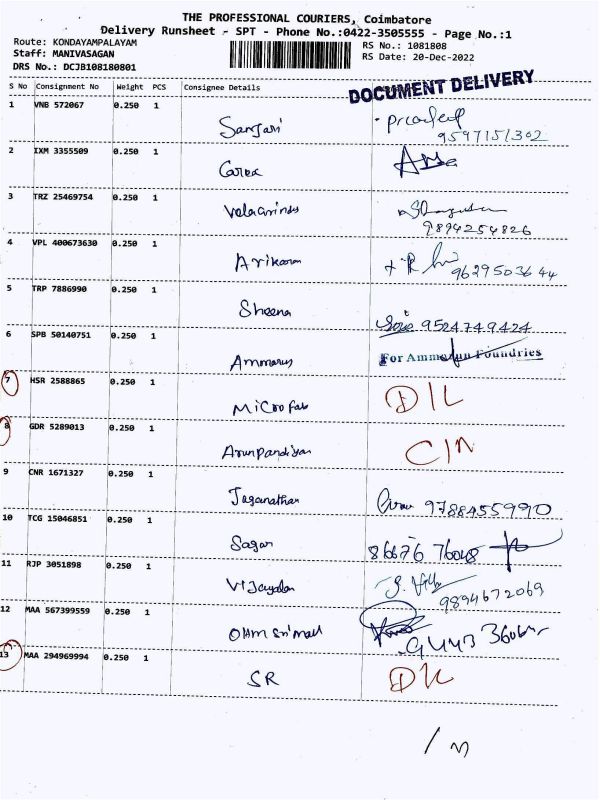 THE PROFESSIONAL COURIERS, Coimbatore
Delivery Runsheet - SPT - Phone No.:0422-3505555 - Page No.:1
Route: KONDAYAMPALAYAM
Staff: MANIVASAGAN
DRS No.: DCJB108180801
RS No.: 1081808
RS Date: 20-Dec-2022
S No Consignment No Weight PCS Consignee Details
DOCUMENT DELIVERY
1 VNB 572067 0.250 1 Sanjari
9597151302
2 IXM 3355509 0.250 1 Carex
3 TRZ 25469754 0.250 1
9894254826
4 VPL 400673630 0.250 1 Arikaran
9629503644
5 TRP 7886990 0.250 1 Sheena
9524749424
6 SPB 50140751 0.250 1 Ammarus
For Ammarun Foundries
7 HSR 2588865 0.250 1 Microfab D/L
8 GDR 5289013 0.250 1 Arunpandiyan C/N
9 CNR 1671327 0.250 1 Jaganathan 9788455990
10 TCG 15046851 0.250 1 Sagar 86676 76048
11 RJP 3051898 0.250 1 Vijayalan
9894672069
12 MAA 567399559 0.250 1 OHM Sri Mall
13 MAA 294969994 0.250 1 SR D/L